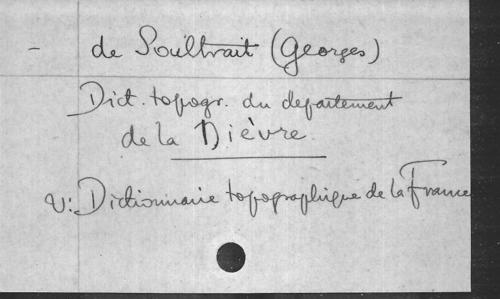 - de Soultrait (Georges)
Dict. topogr. du departement
de la Nièvre
V: Dictionnaire topographique de la France